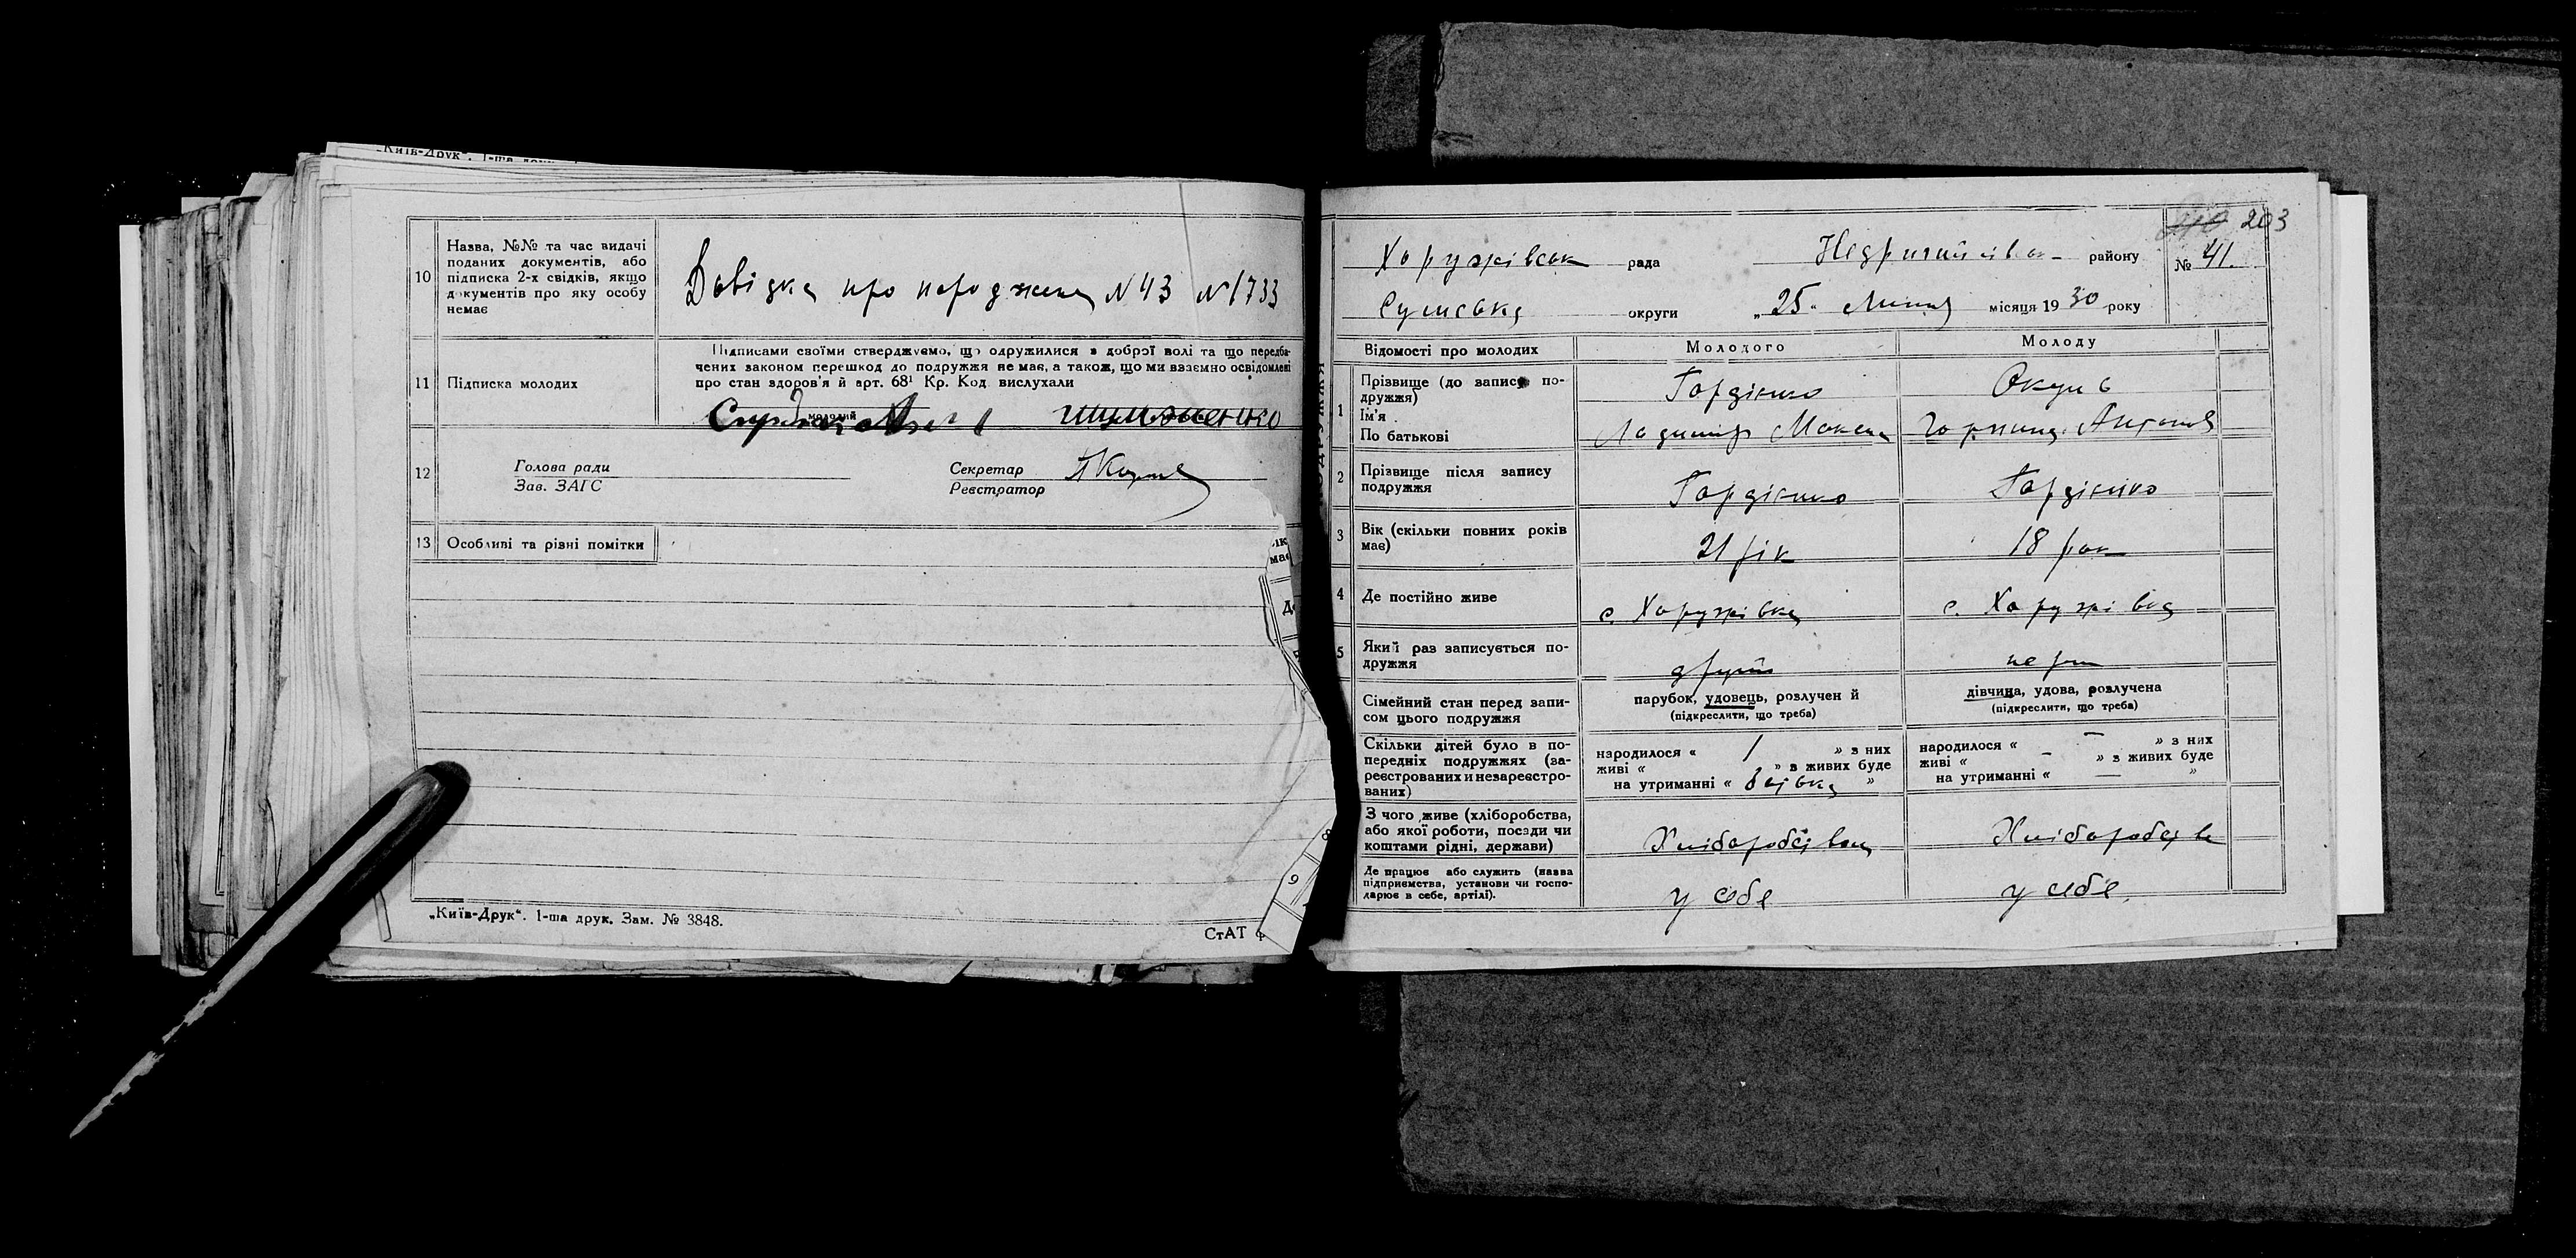 „Київ-Друк“. 1-ша друк.
10 Назва, №№ та час видачі
поданих документів, або
підписка 2-х свідків, якщо
документів про яку особу
немає
Довідка про народження N 43 N 1733
11 Підписка молодих
Підписами своїми стверджуємо, що одружилися з доброї волі та що передба-
чених законом перешкод до подружжя не має, а також, що ми взаємно освідомлені
про стан здоров'я й арт. 68¹ Кр. Код. вислухали
молодий
12 Голова ради
Зав. ЗАГС
Секретар
Реєстратор
13 Особливі та різні помітки
„Київ-Друк“. 1-ша друк. Зам. № 3848.
СтАТ
203
Хоружівськ рада Недригайлівськ району № 41.
Сумська округи „25“ Липня місяця 1930 року
Відомості про молодих Молодого Молоду
1 Прізвище (до запису по-
дружжя)
Ім'я
По батькові
Гордієнко
Окунь
2 Прізвище після запису
подружжя
Гордієнко Гордієнко
3 Вік (скільки повних років
має)
21 рік 18 рок
4 Де постійно живе
с. Хоружівка с. Хоружівка
5 Який раз записується по-
дружжя
другий перш
Сімейний стан перед запи-
сом цього подружжя
парубок, удовець, розлучений
(підкреслити, що треба)
дівчина, удова, розлучена
(підкреслити, що треба)
Скільки дітей було в по-
передніх подружжях (за-
реєстрованих и незареєстро-
ваних)
народилося « 1 » з них
живі « » з живих буде
на утриманні « »
народилося « — » з них
живі « — » з живих буде
на утриманні « — »
З чого живе (хліборобства,
або якої роботи, посади чи
коштами рідні, держави)
Де працює або служить (назва
підприємства, установи чи госпо-
дарює в себе, артілі).
у себе у себе